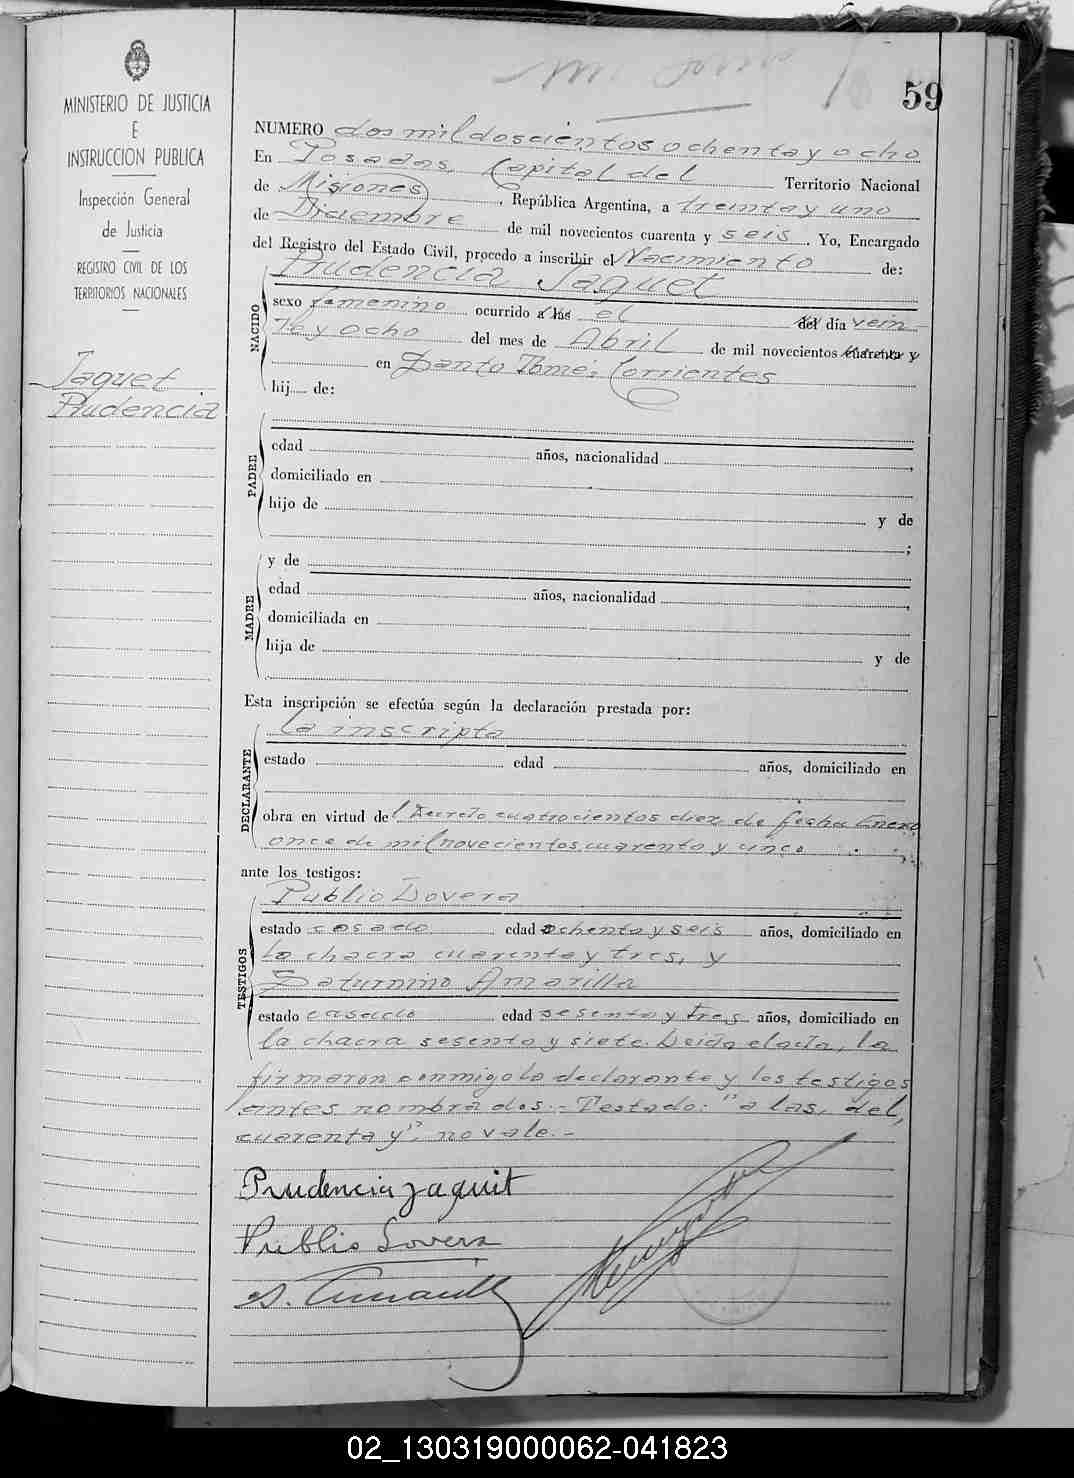 59
MINISTERIO DE JUSTICIA
E
INSTRUCCION PUBLICA
Inspección General
de Justicia
REGISTRO CIVIL DE LOS
TERRITORIOS NACIONALES
Jaquet
Prudencia
NUMERO dos mil doscientos ochenta y ocho
En Posadas, Capital del Territorio Nacional
de Misiones, República Argentina, a treinta y uno
de Diciembre de mil novecientos cuarenta y seis. Yo, Encargado
del Registro del Estado Civil, procedo a inscribir el Nacimiento de:
NACIDO
Prudencia Jaquet
sexo femenino ocurrido a las el del día vein
te y ocho del mes de Abril de mil novecientos cuarenta y
en Santo Tomé, Corrientes
hij de:
PADRE
edad años, nacionalidad ,
domiciliado en
hijo de y de
;
MADRE
y de
edad años, nacionalidad ,
domiciliada en
hija de y de
Esta inscripción se efectúa según la declaración prestada por:
DECLARANTE
La inscripta
estado edad años, domiciliado en
obra en virtud del Decreto cuatrocientos diez de fecha Enero
once de mil novecientos cuarenta y unco
ante los testigos:
TESTIGOS
Publio Lovera
estado casado edad ochenta y seis años, domiciliado en
la chacra cuarenta y tres, y
Saturnino Amarilla
estado casado edad sesenta y tres años, domiciliado en
la chacra sesenta y siete. Leida el acta, la
firmaron conmigo la declarante y los testigos
antes nombrados.- Testado: "a las, del,
cuarenta y", no vale.-
Prudencia Jaquit
Publio Lovera
02_130319000062-041823